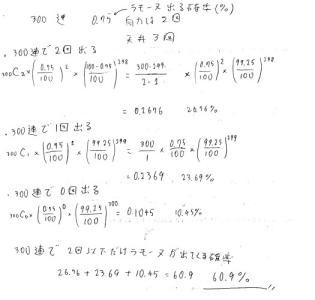 300連 0.75 ラモーヌ出る確率(%)
向こうは2回
天井3回
・300連で2回出る
₃₀₀C₂×(0.75/100)²×(100-0.75/100)²⁹⁸ = 300·299/2·1 ×(0.75/100)²×(99.25/100)²⁹⁸
=0.2676 26.76%
・300連で1回出る
₃₀₀C₁×(0.75/100)¹×(99.25/100)²⁹⁹ = 300/1 × 0.75/100 ×(99.25/100)²⁹⁹
=0.2369 23.69%
・300連で0回出る
₃₀₀C₀×(0.75/100)⁰×(99.25/100)³⁰⁰ = 0.1045 10.45%
300連で2回以下だけラモーヌが出てくる確率
26.76+23.69+10.45=60.9 60.9%